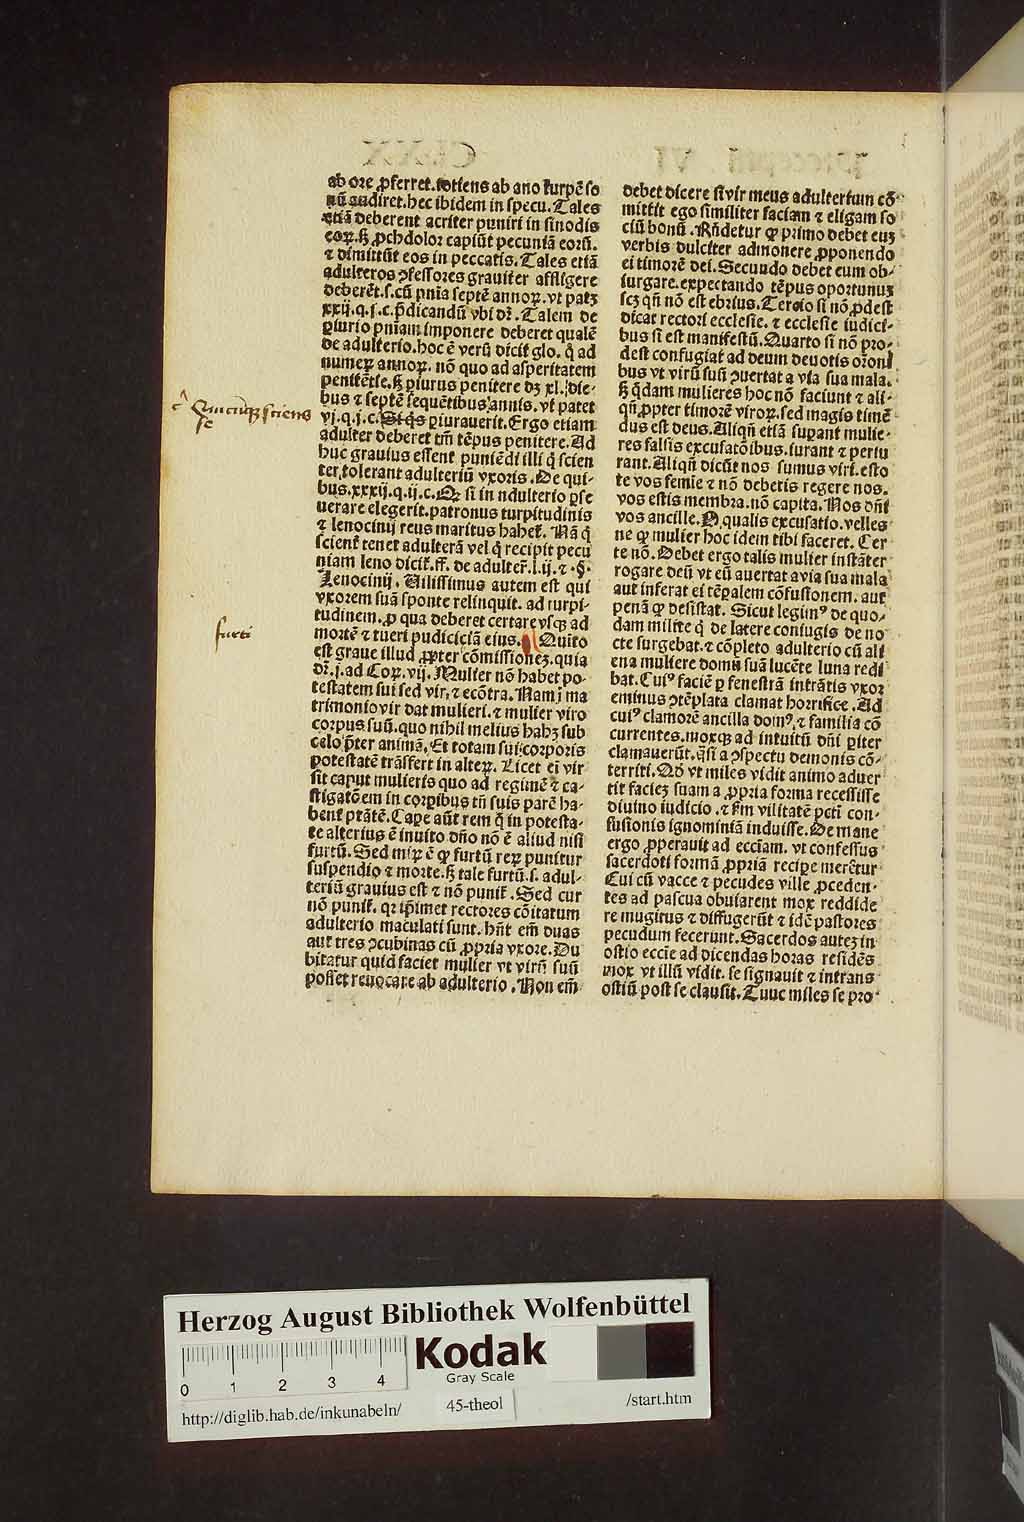 ab ore ꝓferret. totiens ab ano turpē so
nū audiret. hec ibidem in specu. Tales
etiā deberent acriter puniri in sinodis
eoꝝ. sꝫ ꝓchdolor capiūt pecuniā eorū.
⁊ dimittūt eos in peccatis. Tales etiā
adulteros ↄfessores grauiter affligere
deberēt. s. cū pnīa septē annoꝝ. vt patꝫ
xxij. q. j. c. p̄dicandū vbi dr̄. Talem de
ꝑiurio pniam imponere deberet qualē
de adulterio. hoc ē verū dicit glo. q̄ ad
numeꝝ annoꝝ. nō quo ad asperitatem
penitētie. sꝫ ꝑiurus penitere dꝫ xl. die-
bus ⁊ septē sequētibus annis. vt patet
vj. q. j. c. Siq̄s ꝑiurauerit. Ergo etiam
adulter deberet tm̄ tēpus penitere. Ad
huc grauius essent puniēdi illi q̄ scien
ter tolerant adulteriū vxoris. De qui-
bus. xxxij. q. ij. c. Qꝛ si in ndulterio ꝑse
uerare elegerit. patronus turpitudinis
⁊ lenocinij reus maritus habet̄. Nā q̄
scient̄ tenet adulterā vel q̄ recipit pecu
niam leno dicit̄. ff. de adulter̄. l. ij. ⁊ . §.
Lenocinij. Uilissimus autem est qui
vxorem suā sponte relinquit. ad turpi-
tudinem. ꝓ qua deberet certare vsqꝫ ad
mortē ⁊ tueri pudiciciā eius. Quīto
est graue illud ꝓpter cōmissionez. quia
dr̄. j. ad Coꝝ. vij. Mulier nō habet po-
testatem sui sed vir, ⁊ ecōtra. Nam j ma
trimonio vir dat mulieri. ⁊ mulier viro
corpus suū. quo nihil melius habꝫ sub
celo p̄ter animā. Et totam sui corporis
potestatē trāsfert in alteꝝ. Licet ei vir
sit caput mulieris quo ad regimē ⁊ ca-
stigatōem in corꝑibus tn̄ suis parē ha-
bent ptātē. Cape aūt rem q̄ in potesta-
te alterius ē inuito dn̄o nō ē aliud nisi
furtū. Sed miꝝ ē qꝫ furtū reꝝ punitur
suspendio ⁊ morte. sꝫ tale furtū. s. adul-
teriū grauius est ⁊ nō punit̄. Sed cur
nō punit̄. qꝛ ip̄imet rectores cōitatum
adulterio maculati sunt. hn̄t em̄ duas
aut tres ↄcubinas cū ꝓpria vxore. Du
bitatur quid faciet mulier vt virū suū
posset reuocare ab adulterio. Non em̄
debet dicere si vir meus adulterium cō-
mittit ego similiter faciam ⁊ eligam so
ciū bonū. Rn̄detur ꝙ primo debet euꝫ
verbis dulciter admonere ꝓponendo
ei timorē dei. Secundo debet eum ob-
iurgare. expectando tēpus oportunuꝫ
scꝫ qn̄ nō est ebrius. Tercio si nō ꝓdest
dicat rectori ecclesie. ⁊ ecclesie iudici-
bus si est manifestū. Quarto si nō pro-
dest confugiat ad deum deuotis orōni
bus vt virū suū ↄuertat a via sua mala.
sꝫ q̄dam mulieres hoc nō faciunt ⁊ ali-
qn̄ ꝓpter timorē viroꝝ. sed magis timē
dus est deus. Aliqn̄ etiā suꝑant mulie-
res falsis excusatōibus. iurant ⁊ periu
rant. Aliqn̄ dicūt nos sumus viri. esto
te vos femie ⁊ nō debetis regere nos.
vos estis membra. nō capita. Nos dn̄i
vos ancille. O qualis excusatio. velles
ne ꝙ mulier hoc idem tibi faceret. Cer
te nō. Debet ergo talis mulier instāter
rogare deū vt eū auertat a via sua mala
aut inferat ei tēꝑalem cōfustonem. aut
penā ꝙ desistat. Sicut legimꝰ de quo-
dam milite q̄ de latere coniugis de no
cte surgebat. ⁊ cōpleto adulterio cū ali
ena muliere domū suā lucēte luna redi
bat. Cuiꝰ faciē ꝑ fenestrā intrātis vxor
eminus ↄtēplata clamat horrifice. Ad
cuiꝰ clamorē ancilla domꝰ, ⁊ familia cō
currentes. moxqꝫ ad intuitū dn̄i ꝑiter
clamauerūt. q̄si a ↄspectu demonis cō-
territi. Qd̄ vt miles vidit animo aduer
tit facieꝫ suam a ꝓpria forma recessisse
diuino iudicio. ⁊ km̄ vilitatē pcti con-
fusionis ignominiā induisse. De mane
ergo ꝓperauit ad ecciam. vt confessus
sacerdoti formā ꝓpriā recipe merētur
Cui cū vacce ⁊ pecudes ville ꝓceden-
tes ad pascua obuiarent mox reddide
re mugitus ⁊ diffugerūt ⁊ idē pastores
pecudum fecerunt. Sacerdos auteꝫ in
ostio eccie ad dicendas horas residēs
mox vt illū vidit. se signauit ⁊ intrans
ostiū post se clausit. Tuuc miles se pro-
c̄ Quicūqꝫ sciens
se
furti
Herzog August Bibliothek Wolfenbüttel
0 1 2 3 4
Kodak
Gray Scale
http://diglib.hab.de/inkunabeln/
45-theol
/start.htm